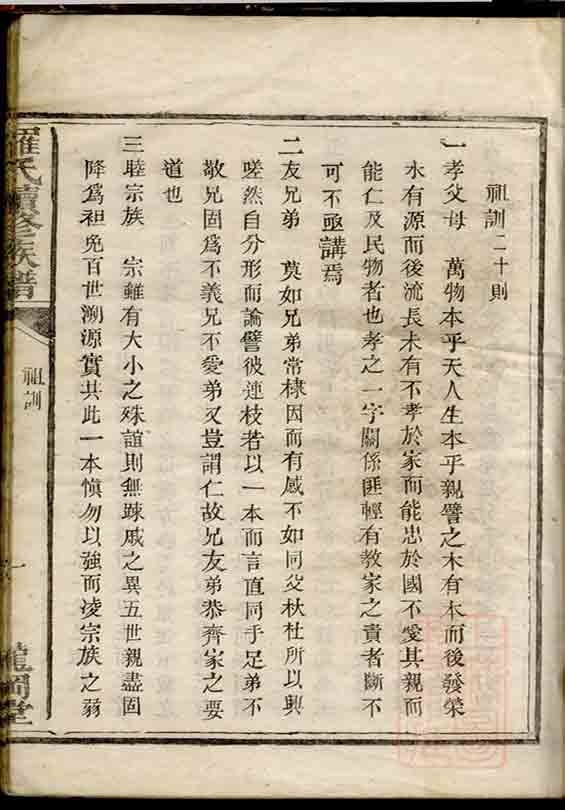 祖訓二十則
一孝父母　萬物本乎天人生本乎親譬之木有本而後發榮
水有源而後流長未有不孝於家而能忠於國不愛其親而
能仁及民物者也孝之一字關係匪輕有教家之責者斷不
可不亟講焉
二友兄弟　莫如兄弟常棣因而有感不如同父杕杜所以興
嗟然自分形而論譬彼連枝若以一本而言直同手足弟不
敬兄固爲不義兄不愛弟又豈謂仁故兄友弟恭齊家之要
道也
三睦宗族　宗雖有大小之殊誼則無踈戚之異五世親盡固
降爲袒免百世溯源實共此一本愼勿以強而凌宗族之弱
羅氏續修族譜
祖訓
一